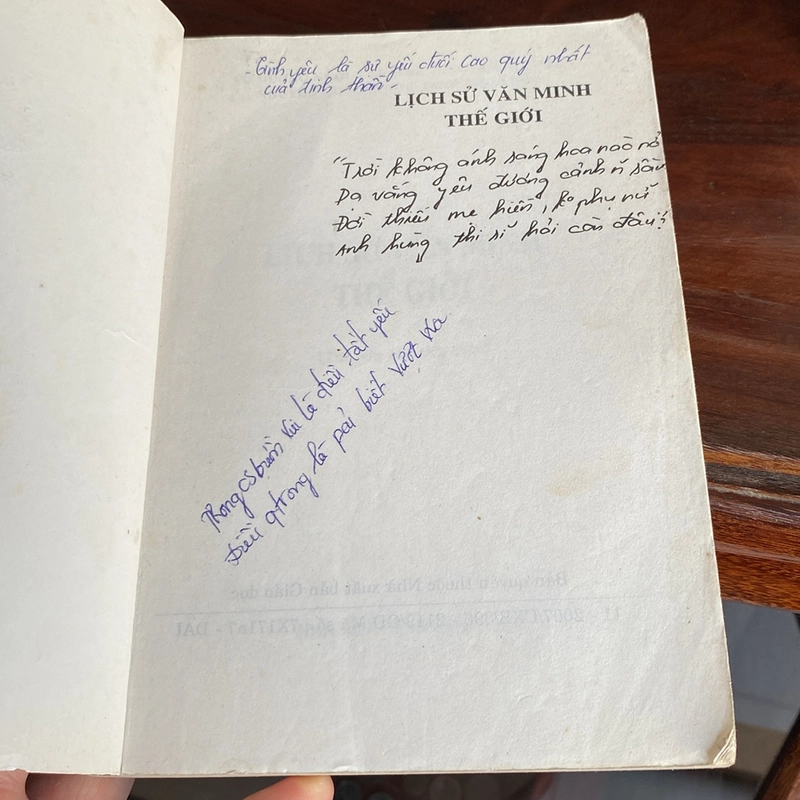 - Tình yêu là sự yếu đuối cao quý nhất
của tinh thần -
LỊCH SỬ VĂN MINH
THẾ GIỚI
"Trời không ánh sáng hoa nào nở
Dạ vắng yêu đương cảnh n sầu
Đời thiếu mẹ hiền, ko phụ nữ
Anh hùng thi sĩ hỏi còn đâu?
Trong CS buồn vui là điều tất yếu
Điều qtrong là pải biết vượt wa
Bản quyền thuộc Nhà xuất bản Giáo dục